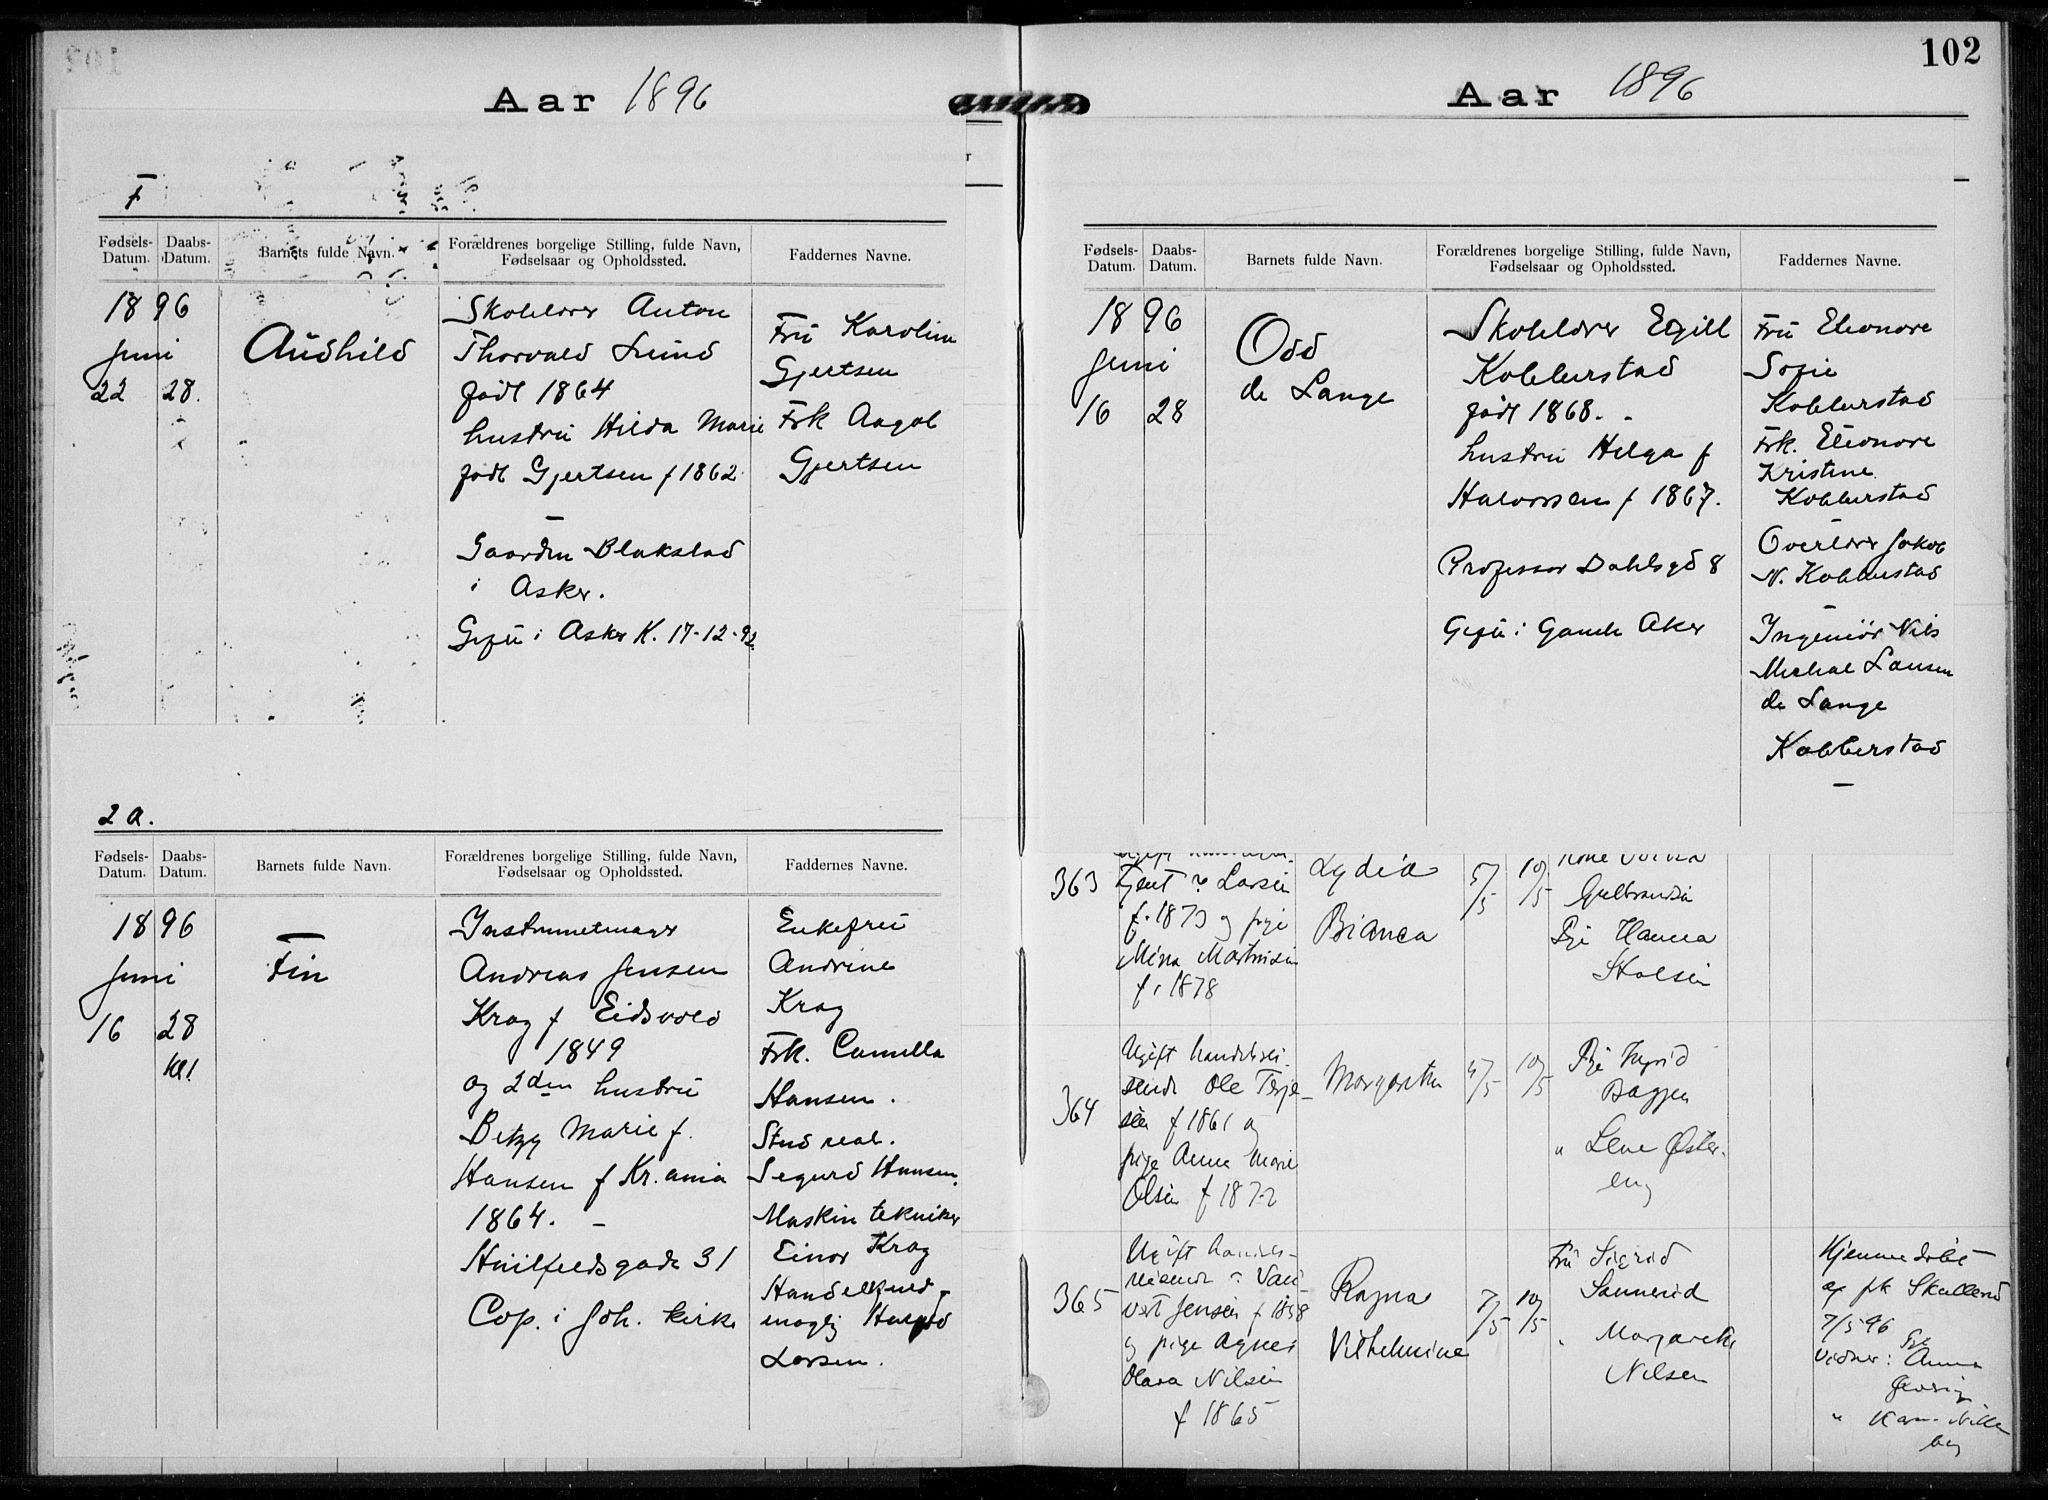 Aar 1896
F
Fødsels-Datum. Daabs-Datum. Barnets fulde Navn. Forældrenes borgelige Stilling, fulde Navn, Fødselsaar og Opholdssted. Faddernes Navne.
1896
Juni
22 28.
Audhild
Skolelærer Anton
Thorvald Lund
født 1864
hustru Hilda Marie
født Gjertsen f 1862
Gaarden Blakstad
i Asker.
Gift i Asker K. 17-12-92
Fru Karoline
Gjertsen
Frk Aagot
Gjertsen
2 a.
Fødsels-Datum. Daabs-Datum. Barnets fulde Navn. Forældrenes borgelige Stilling, fulde Navn, Fødselsaar og Opholdssted. Faddernes Navne.
1896
Juni
16 28
kl 1.
Fin
Instrumetmager
Andreas Jensen
Krag f Eidsvold
1849
og 2den hustru
Betzy Marie f.
Hansen f Kr.ania
1864. -
Huitfeldsgade 31
Cop. i Joh. kirke
Enkefru
Andrine
Krag
Frk. Camilla
Hansen.
Stud real.
Sigurd Hansen.
Maskin tekniker
Einar Krag
Larsen.
102
Aar 1896
Fødsels-Datum. Daabs-Datum. Barnets fulde Navn. Forældrenes borgelige Stilling, fulde Navn, Fødselsaar og Opholdssted. Faddernes Navne.
1896
Juni
16 28
Odd
de Lange
Skolelærer Egill
Kobberstad
født 1868. -
hustru Helga f
Halvorsen f 1867.
Professor Dahlsgd 8
Gift i Gamle Aker
Fru Eleonore
Sofie
Kobberstad
Frk. Eleonore
Kristine
Kobberstad
Overlærer Jakob
N. Kobberstad
Ingeniør Nils
Michal Lausen
de Lange
Kobberstad
363
Larsen
f. 1873 og pige
Mina Martinsen
f. 1878
Lydia
Bianca
5/5 10/5
Gulbrandsen
Pge Hanna
364
Ugift handelsrei-
sende Ole Terje-
sen f 1861 og
pige Anna Marie
Olsen f 1872
Margaretha
4/5 10/5
Pge Ingrid
Baggen
" Lene Øster-
eng
365
Ugift handels-
Jensen f 1858
og pige Agnes
Olava Nilsen
f 1865
Ragna
Vilhelmine
7/5 10/5
Fru Sigrid
Sannerud
" Margarethe
Nilsen
Hjemmedøbt
af frk Skullerud
7/5 96
Vidner: Pge Anna